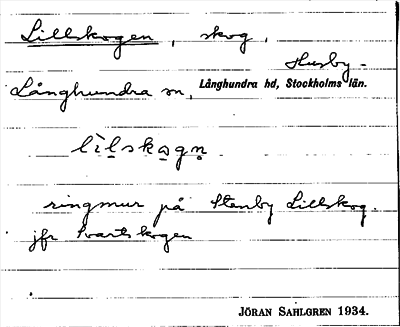 Lillskogen, skog,
Husby-
Långhundra sn, Långhundra hd, Stockholms län.
lìl̥sko̥gn̥
ringmur på Stenby Lillskog.
jfr Svartskogen
JÖRAN SAHLGREN 1934.